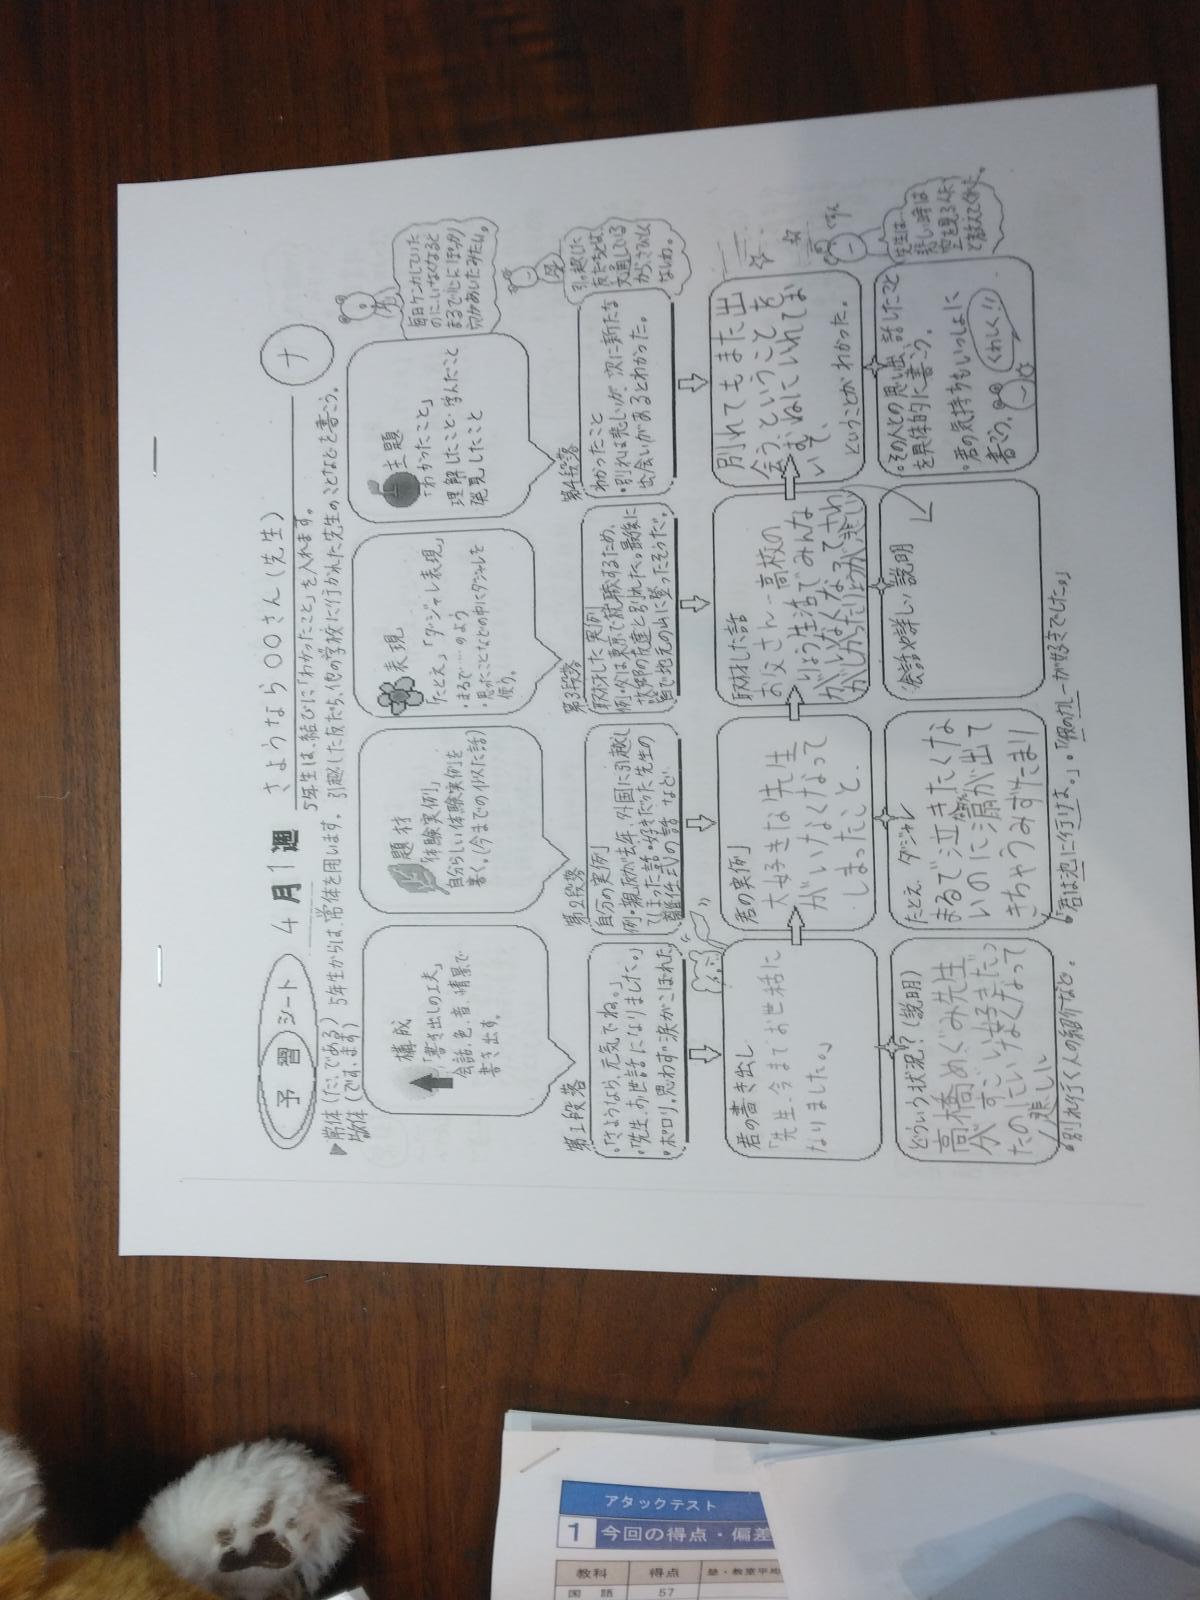 予習シート 4月1週 さようなら〇〇さん(先生) ナ
5年生は、結びに「わかったこと」を入れます。
▶常体(だ、である) 5年生からは、常体を用います。
敬体(です、ます)
引越した友だち、他の学校に行かれた先生のことなどを書こう。
構成
「書き出しの工夫」
会話、色、音、情景で
書き出す。
題材
「体験実例」
自分らしい体験実例を
書く。(今までの似た話)
表現
「たとえ」「ダジャレ表現」
・まるで…のよう
・思ったことなどの中にダジャレを
使う。
主題
「わかったこと」
理解したこと・学んだこと
発見したこと
毎日ケンカしていた
のに…いなくなると
まるで心にぽっかり
穴があいたみたい。
第1段落
・「さようなら、元気でね。」
・「先生、お世話になりました。」
・ポロリ。思わず涙がこぼれた
第2段落
自分の実例
例・親友が去年、外国に引越し
てしまった話・好きだった先生の
離任式の話 など
第3段落
取材した実例
例・父は東京で就職するため、
故郷の友達と別れた。最後に
皆で地元の山に登ったそうだ。
第4段落
わかったこと
・別れは悲しいが、次に新たな
出会いがあるとわかった。
引っ越した
友だちとは、
文通している
から、さみしく
ないわ。
君の書き出し
「先生、今までお世話に
なりました。」
君の実例
大好きな先生
がいなくなって
しまったこと。
取材した話
お父さん…高校の
りょう生活でみんな
がいなくなってさわ
がしかったりょうが悲しい
別れてもまた出
会う、ということを
むねにいれてお
いて、
ということがわかった。
ぐすん
先生は…
悲しい時は
空を見るんだよ
と教えてくれた
どういう状況?(説明)
高橋めぐみ先生
がすごい好きだっ
たのにいなくなって
悲しい
たとえ、ダジャレ
まるで泣きたくな
いのに涙が出て
きちゃうみずたまり
会話や詳しい説明
・その人との思い出、話したこと
を具体的に書こう。
・君の気持ちもいっしょに
書こう。
くわしく!!
・別れ行く人の紹介など。
「君は池に行けよ。」・「彼のカレーが好きでした。」
アタックテスト
1 今回の得点・偏差
教科 得点 塾・教室平均
国語 57